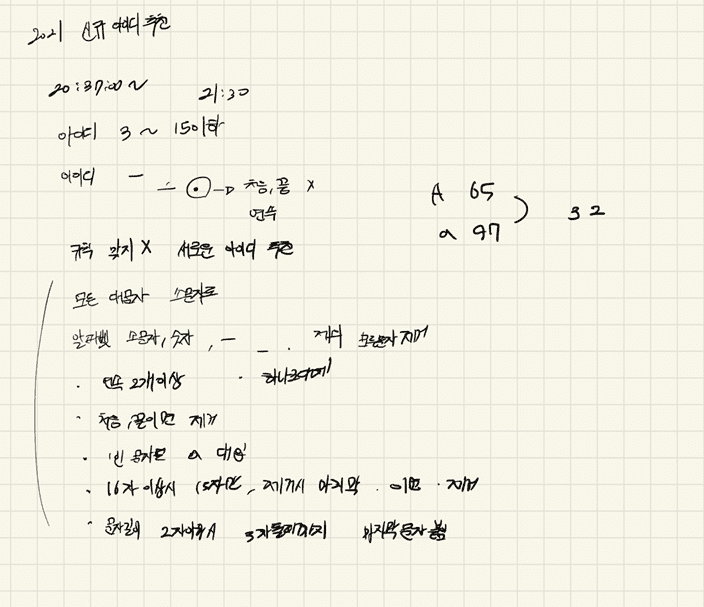 2021 신규 아이디 추천
20:37:00 ~ 21:30
아이디 3 ~ 15이하
아이디 - _ . → 처음, 끝 x
연속
A 65
a 97
32
규칙 맞지 X 새로운 아이디 추천
모든 대문자 소문자로
알파벳 소문자, 숫자, - _ . 제외 모든문자 제거
· 연속 2개이상 · 하나로
· 처음, 끝이면 제거
· 빈 문자면 a 대입
· 16자 이상시 15자만, 제거시 마지막 . 이면 · 제거
· 문자길이 2자이하시 3자 마지막 문자 붙임